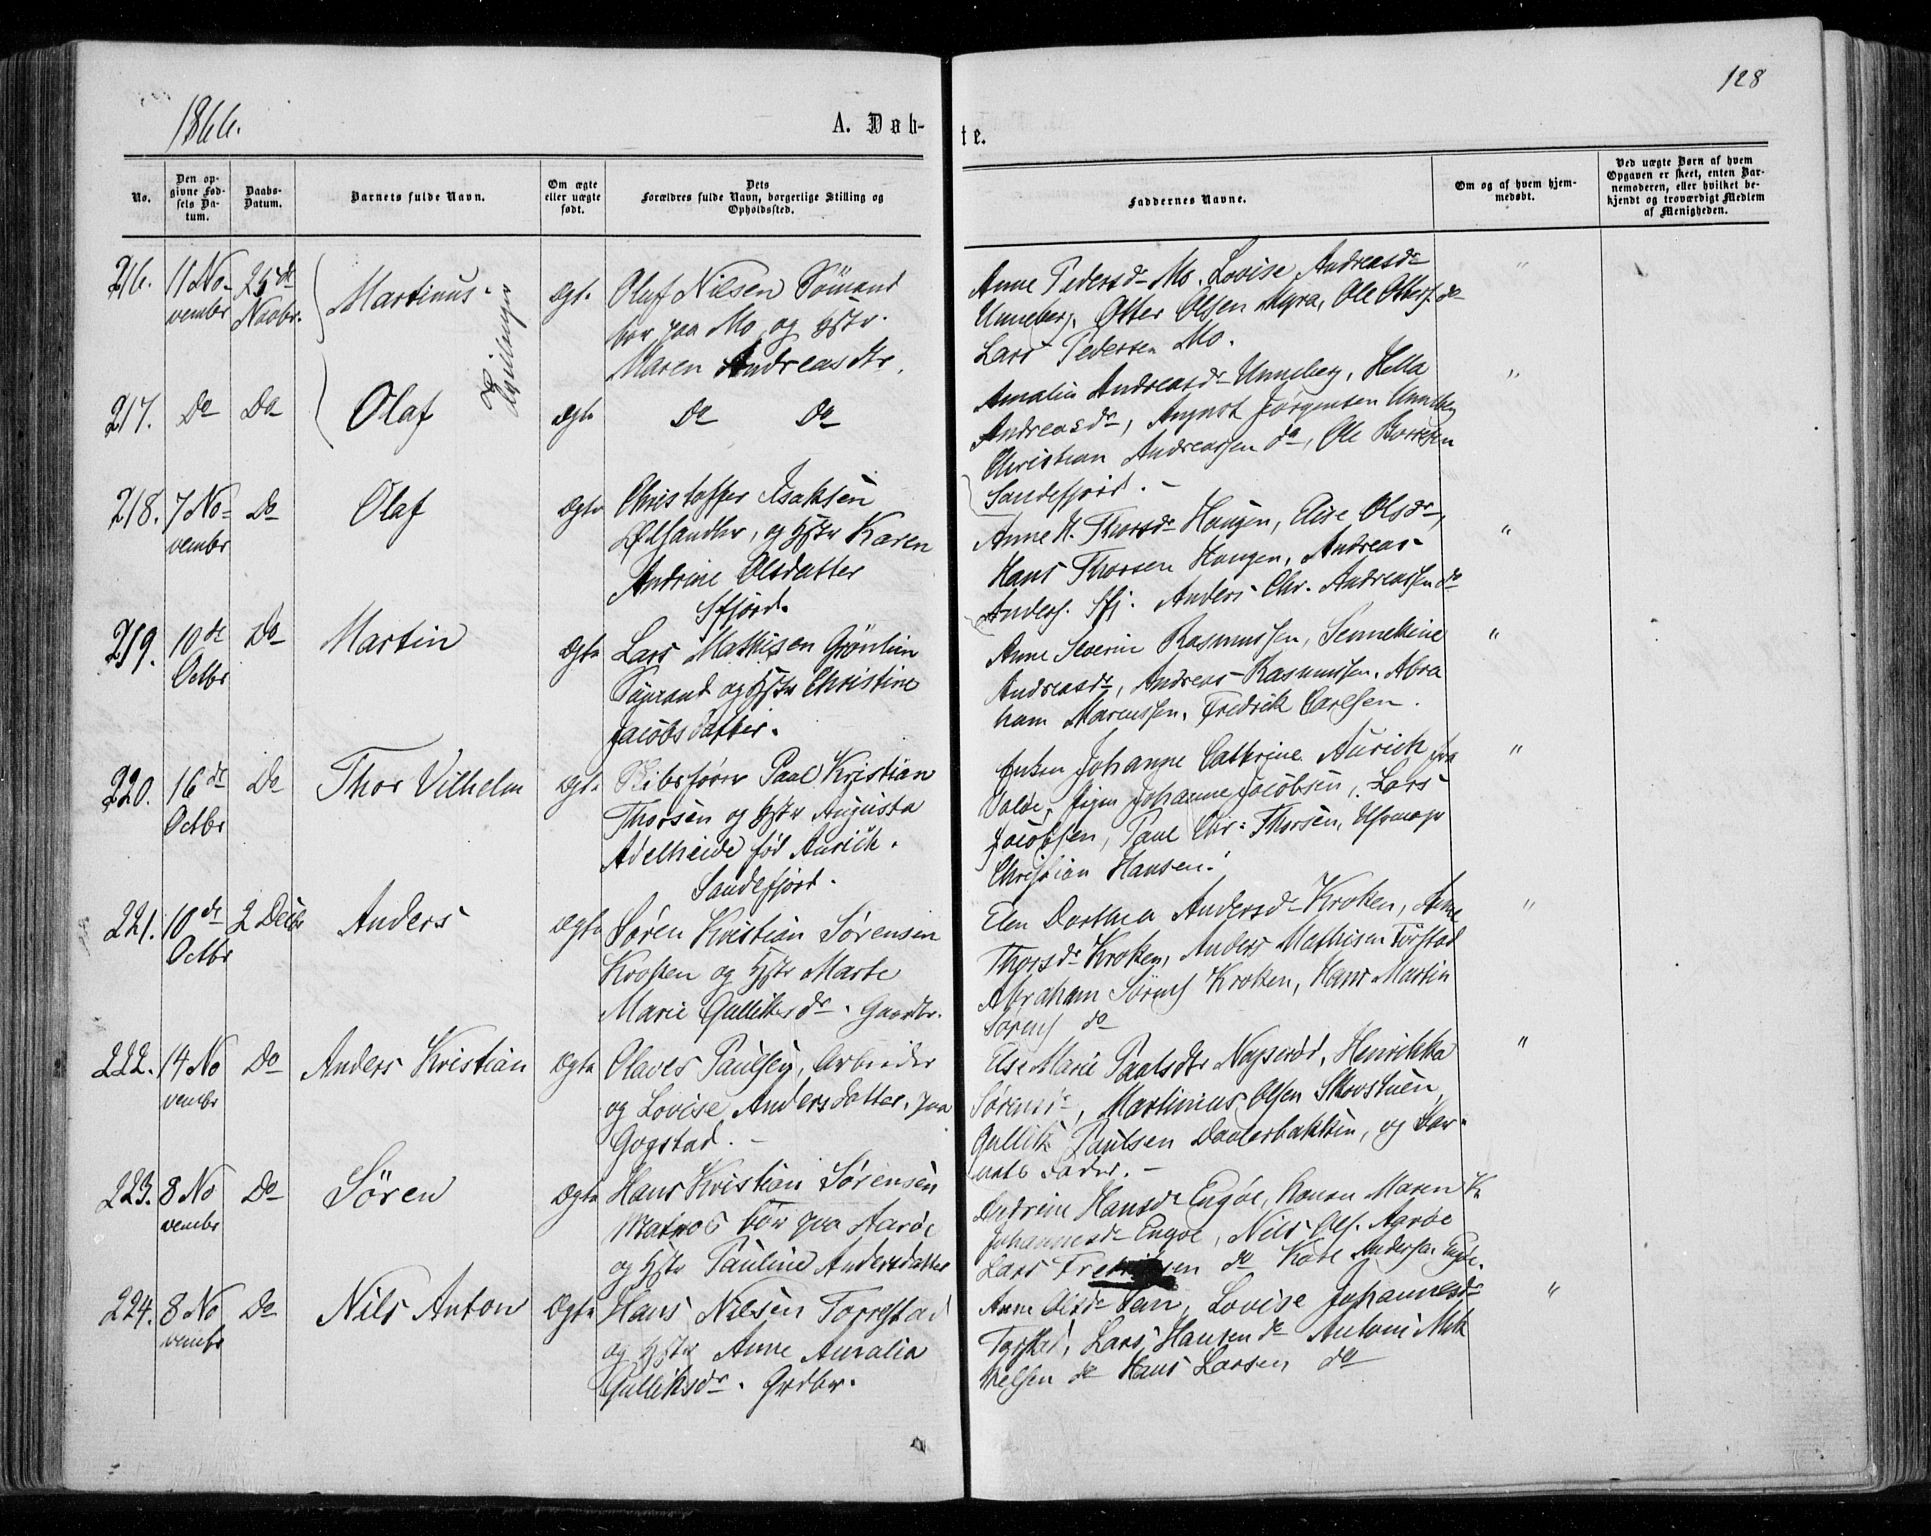 128
1866.
A. Døb-
te.
No.
Den op-
givne Fød-
sels Da-
tum.
Daabs-
Datum.
Barnets fulde Navn.
Om ægte
eller uægte
født.
Dets
Forældres fulde Navn, borgerlige Stilling og
Opholdssted.
Faddernes Navne.
Om og af hvem hjem-
medøbt.
Ved uægte Børn af hvem
Opgaven er skeet, enten Bar-
nemoderen, eller hvilket be-
kjendt og troværdigt Medlem
af Menigheden.
216. 11 No-
vembr
25de
Novbr.
Martinus
Tvillinger
Ægte
Oluf Nilsen Sømand
bor paa Mo og Hstr.
Maren Andreasdtr.
Anne Pedersdr Mo. Lovise Andreasdr
Unneberg. Otter Olsen Myra, Ole Otters. do
Lars Pedersen Mo.
"
217. Do Do
Olaf
Ægte
Do Do
Amalie Andreasdr Unneberg, Hella
Andreasdr, August Jørgensen Unneberg
Christian Andreassen do, Ole Borresen
Sandefjord.
"
218. 7 No-
vembr
Do
Olaf
Ægte
Christoffer Isaksen
Ølhandler, og Hstr Karen
Andrine Olsdatter
Sfjord.
Anne H. Thorsdr Haugen, Elise Olsdr,
Hans Thorsen Haugen, Andreas
Anders. Sfj. Anders Chr. Andreassen do
"
219. 10de
Octbr
Do
Martin
Ægte
Lars Mathisen Grønlien
Sømand og Hstr Christine
Jacobsdatter.
Anne Severine Rasmussen,
Andreasdr, Andreas Rasmussen. Abra
ham Marcussen, Fredrik Carlsen.
"
220. 16de
Octbr
Do
Thor Vilhelm
Ægte
Skibsfører Paul Kristian
Thorsen og Hstr Augusta
Adelheide fød Aurich.
Sandefjord.
Enken Johanne Cathrine Aurich fra
Valøe, Pigen Johanne Jacobsen, Lars
Jacobsen, Paul Chr: Thorsen,
Christian Hansen.
"
221. 10de
Octbr
2 Decbr
Anders
Ægte
Søren Kristian Sørensen
Kroken og Hstr Marte
Marie Gulliksdr. Gaardbr.
Elen Dorthea Andersdr Kroken, Anne
Thorsdr Kroken, Anders Mathisen Tørstad
Abraham Sørens Kroken, Hans Martin
Sørens do
"
222. 14 No
vembr
Do
Anders Kristian
Ægte
Olaves Paulsen, Arbeider
og Lovise Andersdatter, paa
Gogstad.
Else Marie Paulsdtr Nøyserød, Henrikka
Sørensdr, Martinius Olsen Skovstuen,
Gullik Paulsen Daolerbakken, og Bar-
nets Fader.
"
223. 8 No
vembr
Do
Søren
Ægte
Hans Kristian Sørensen
Matros bor paa Aarøe
og Hstr Pauline Andersdatter
Andrine Hansdr Engøe, Konen Maren K
Johannesdr Engøe, Nils Ols. Aarøe
Lars do Kole Andersen Engøe.
224. 8 No
vembr
Do
Nils Anton
Ægte
Hans Nilsen Torrestad
og Hstr Anne Amalia
Gulliksdr. Grdbr.
Anne Olsdr Tem, Lovise Johannesdr
Tørstad, Lars Hansen do Antoni Mik
kelsen do Hans Larsen do
"